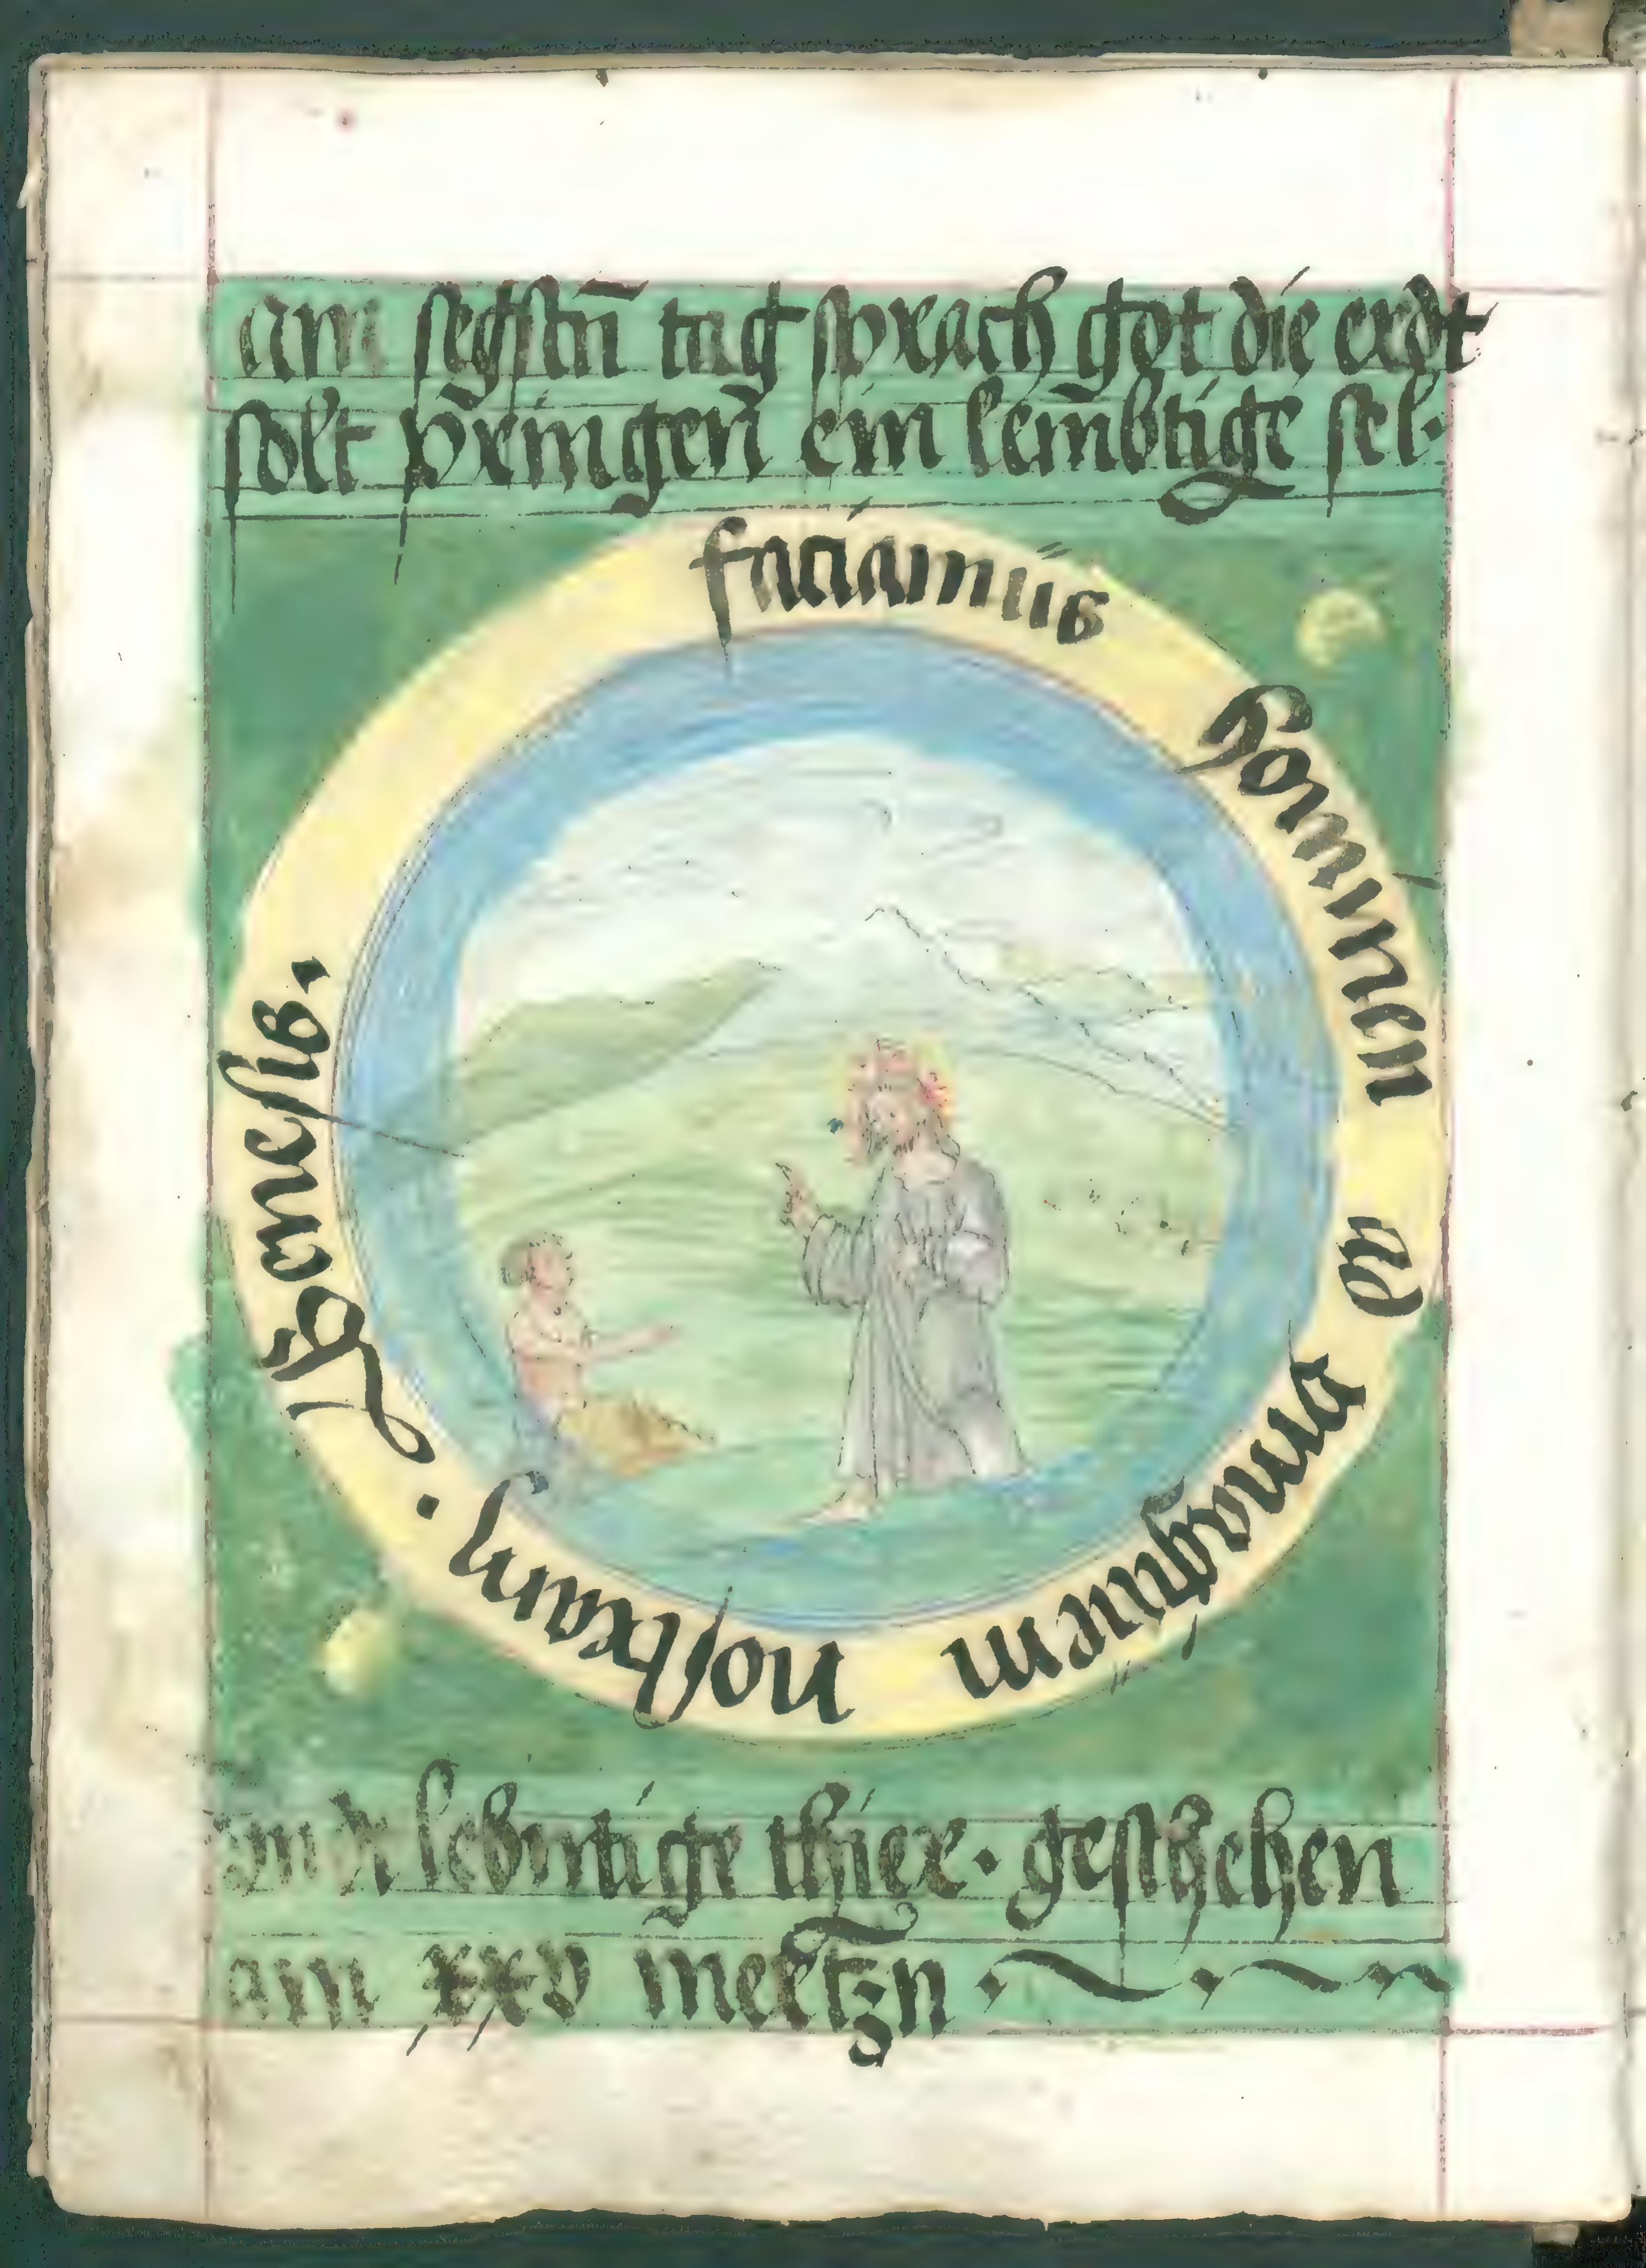 am segstn̄ tag sprach got die erdt
solt p̄ringen̄ ein lem̄btige sel·
faciamus hominen ad ymaḡinem nostram · Genesis.
und lebmtige thier · gestschehen
am xxv mertzn ·